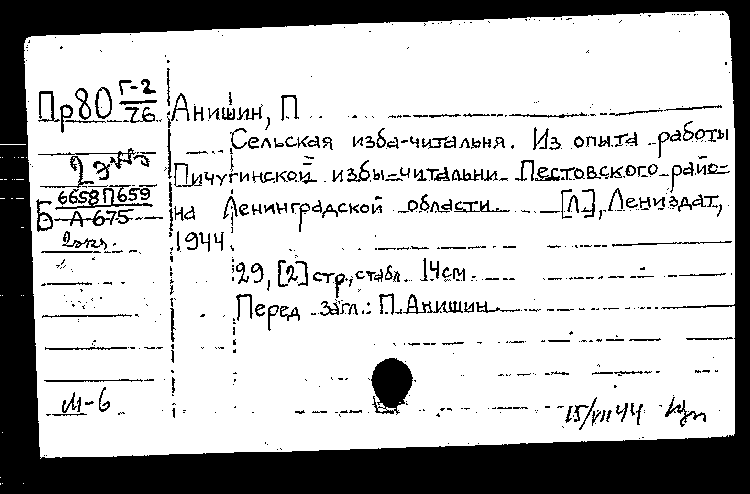 Пр80 Г-2/76
Анишин, П
Сельская изба-читальня. Из опыта работы
2 экз
Пичугинской избы-читальни Пестовского райо-
6658П659
Б А-675
на Ленинградской области. [Л], Лениздат,
2 экз.
1944.
29, [2] стр., с табл. 14 см.
Перед загл.: П. Анишин.
М-6
15/VII 44